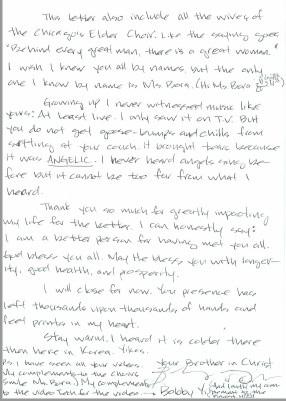 This letter also include all the wives of
the Chicago's Elder Choir. Like the saying goes
"Behind every great man, there is a great woman."
I wish I knew you all by names, but the only
one I know by name is Ms. Bora. (Hi Ms. Bora
Growing up I never witnessed music like
yours: At least live. I only saw it on T.V. But
you do not get goose-bumps and chills from
sitting at your couch. It brought tears because
it was ANGELIC. I never heard angels sing be-
fore but it cannot be too far from what I
heard.
Thank you so much for greatly impacting
my life for the better. I can honestly say:
I am a better person for having met you all.
God bless you all. May He bless you with longev-
ity, good health, and prosperity.
I will close for now. You presence has
left thousands upon thousands of hands and
feet prints in my heart.
Stay warm. I heard it is colder there
then here in Korea. Yikes.
P.s. I have seen all your videos. Your Brother in Christ
My complements to the Choirs
Smile Ms. Bora.) My complements
to the video Too for the video Bobby Y.